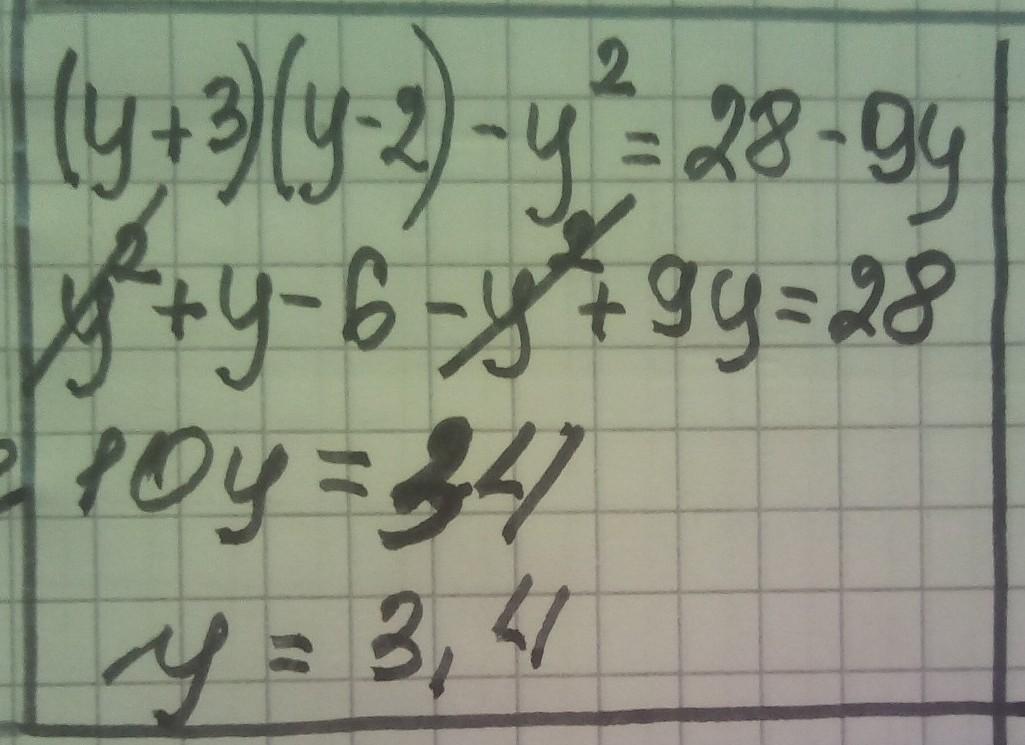 (y+3)(y-2)-y²=28-9y
y²+y-6-y²+9y=28
10y=34
y=3,4